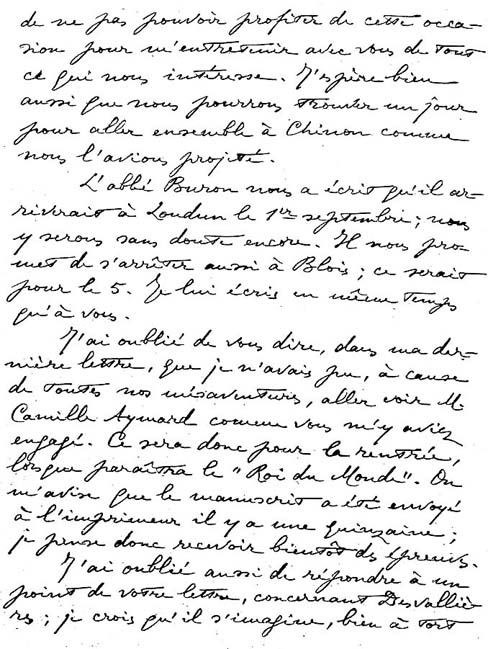 de ne pas pouvoir profiter de cette occa-
sion pour m'entretenir avec vous de tout
ce qui nous intéresse. J'espère bien
aussi que nous pourrons trouver un jour
pour aller ensemble à Chinon comme
nous l'avions projeté.
L'abbé Buron nous a écrit qu'il ar-
riverait à Loudun le 1er septembre ; nous
y serons sans doute encore. Il nous pro-
met de s'arrêter aussi à Blois ; ce serait
pour le 5. Je lui écris en même temps
qu'à vous.
J'ai oublié de vous dire, dans ma der-
nière lettre, que je n'avais pu, à cause
de toutes nos mésaventures, aller voir M.
Camille Aymard comme vous m'y aviez
engagé. Ce sera donc pour la rentrée,
lorsque paraîtra le "Roi du Monde". On
m'avise que le manuscrit a été envoyé
à l'imprimeur il y a une quinzaine ;
je pense donc recevoir bientôt des épreuves.
J'ai oublié aussi de répondre à un
point de votre lettre, concernant Desvalliè-
res ; je crois qu'il s'imagine, bien à tort